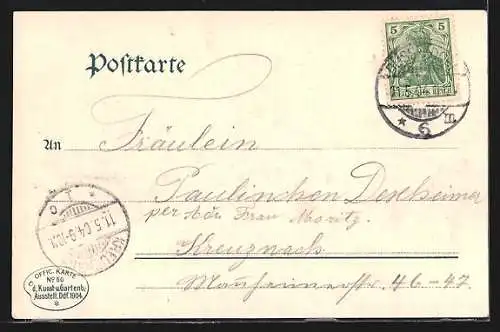 Postkarte
5
11.5.
6 m
An
Fräulein
Paulinchen Dexheimer
per Adr Frau Moritz.
Kreuznach
Mannheimerstr. 46-47
1 c
11.5.04.8-10
OFFIC. KARTE
No 50
d. Kunst-u. Gartenb.
Ausstell. Ddf. 1904.